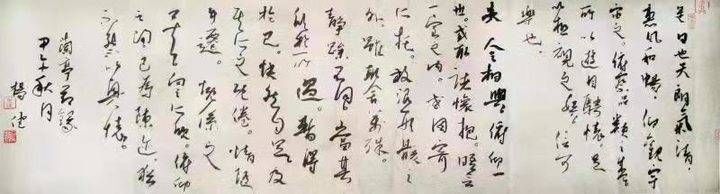 是日也天朗氣清
惠風和暢仰觀宇
宙之俯察品類之盛
所以遊目騁懷足
以極視之娛信可
樂也
夫人相與俯仰一
世或取諸懷抱晤言
一室之內或因寄
所托放浪形骸之
外雖取舍萬殊
靜躁不同當其
欣於所遇暫得
於己快然自足及
其所之既倦情隨
事遷感慨係之
矣向之所欣俯仰
之間已為陳迹猶
不能不以興懷
蘭亭節錄
甲午秋月
楊